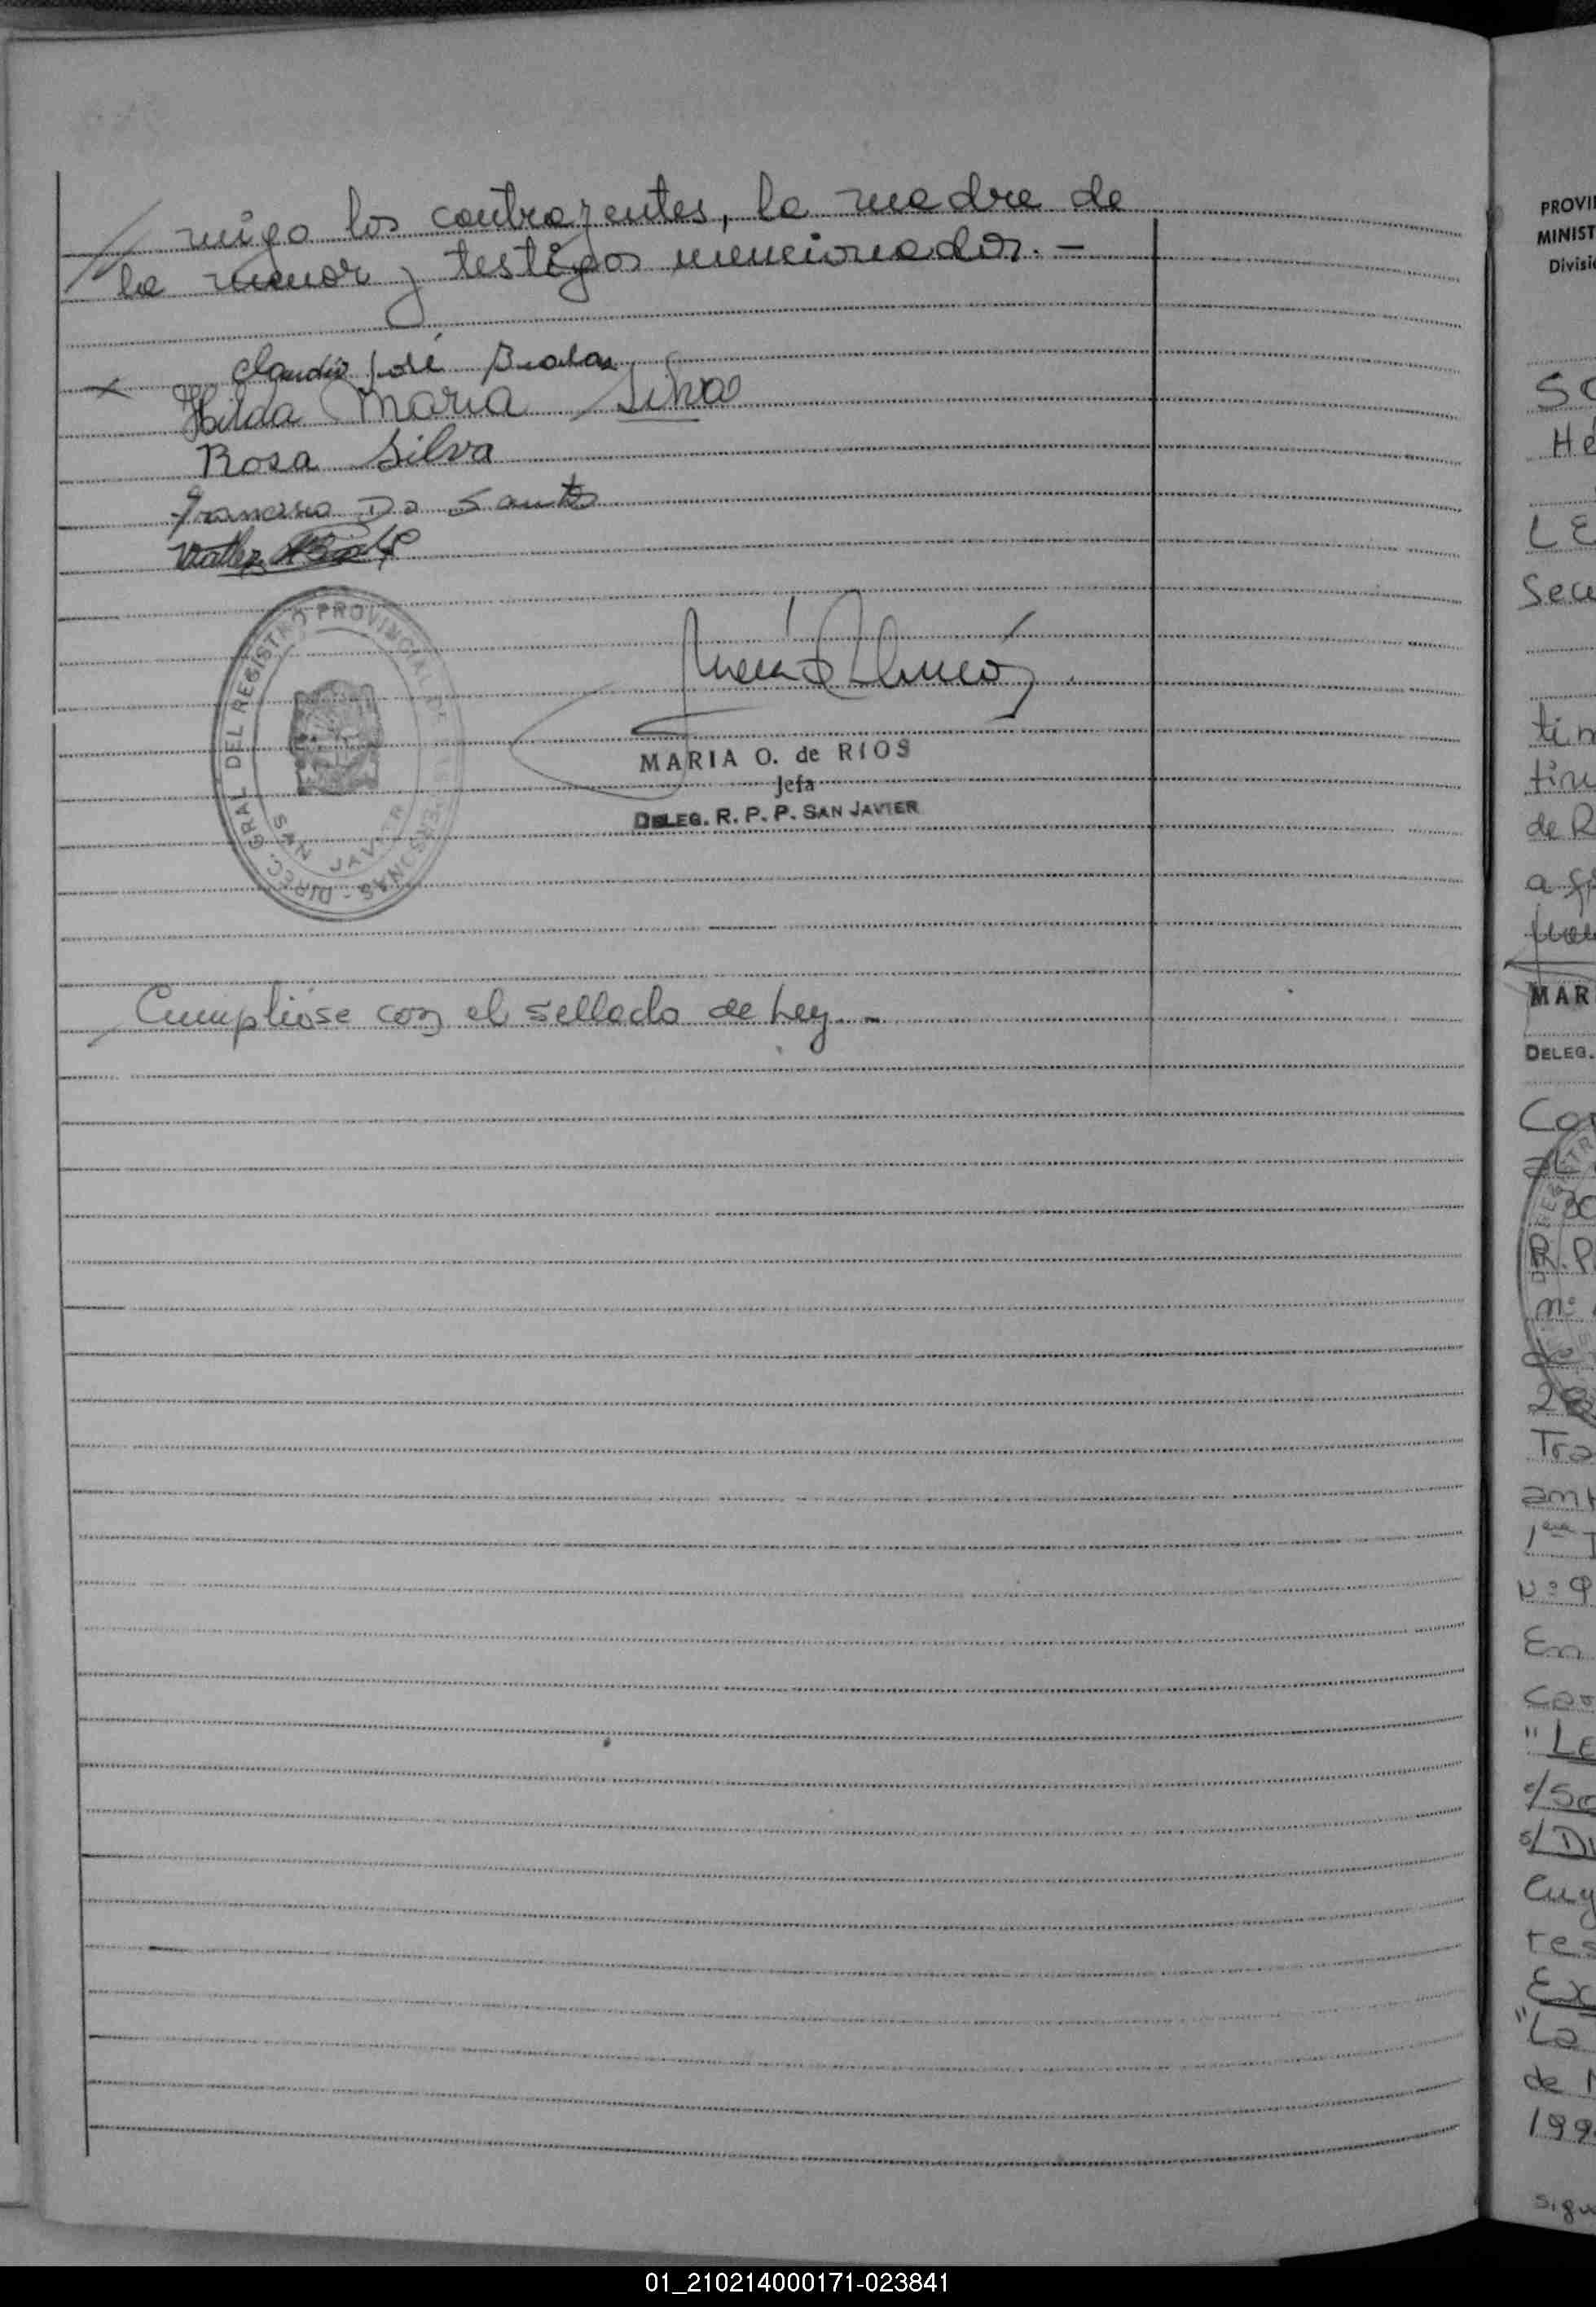 migo los contrayentes, la madre de
la menor y testigos mencionados. -
Claudio José
Hilda Maria Silva
Rosa Silva
Francisco Do Santo
DIRECC. GRAL DEL REGISTRO PROVINCIAL DE LAS PERSONAS -
SAN JAVIER
MARIA O. de RIOS
Jefa
DELEG. R. P. P. SAN JAVIER
Cumplióse con el sellado de Ley. -
PROVI
MINIST
Divisi
SO
HE
LE
Secu
tim
de R
MAR
DELEG.
30
R. P
nº
Tra
Nº 9
En
"LE
s/ D
Cuy
res
Ex
"La
de
199
Sigu
01_210214000171-023841